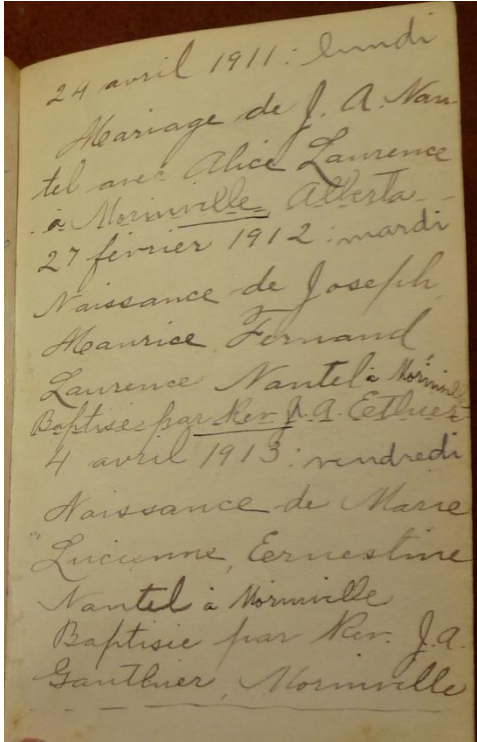 24 avril 1911 : lundi
Mariage de J. A. Nan-
tel avec Alice Laurence
à Morinville Alberta
27 février 1912 : mardi
Naissance de Joseph
Maurice Fernand
Laurence Nantel à Morinville
Baptisé par Rev. J. A. Ethier
4 avril 1913 : vendredi
Naissance de Marie
Lucienne, Eernestine
Nantel à Morinville
Baptisie par Rev. J. A.
Gauthier, Morinville